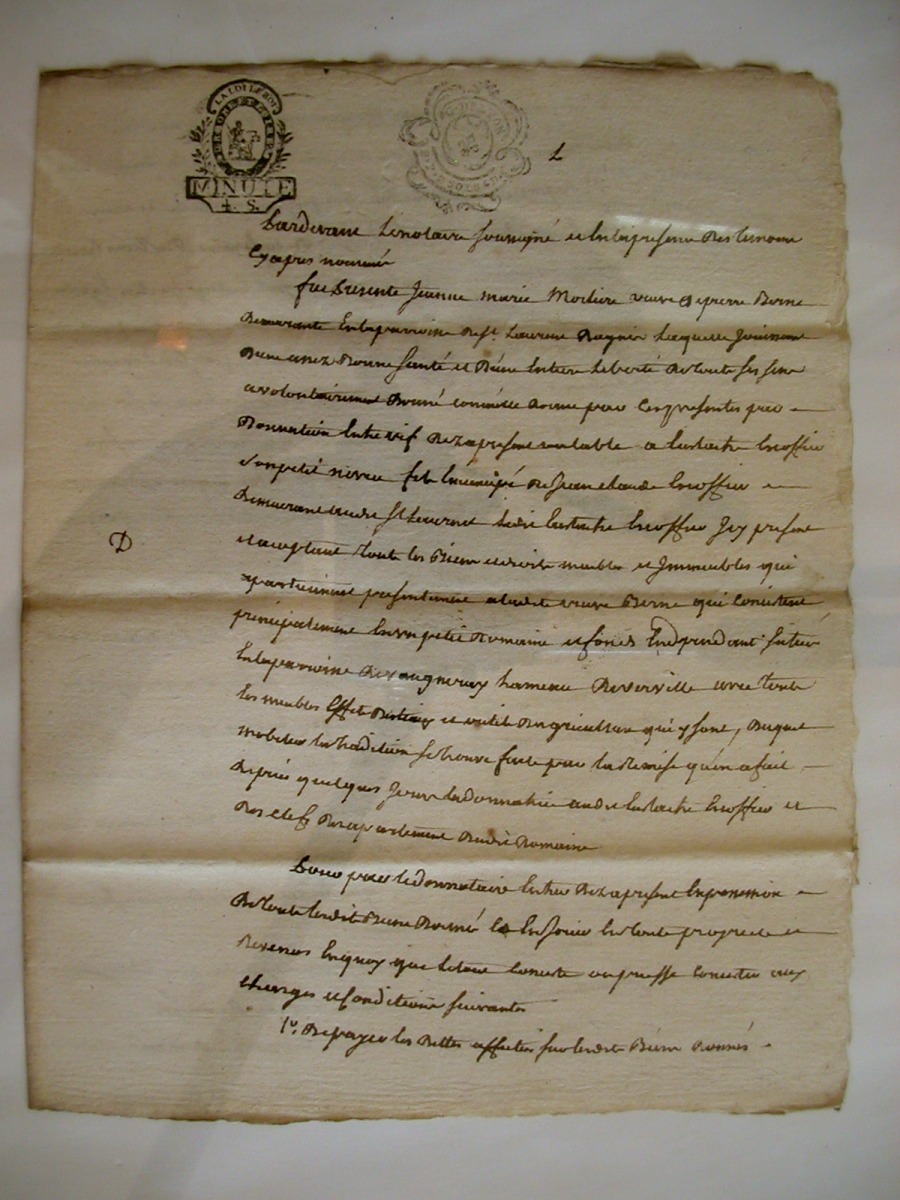 LA LOI LE ROI
MINUTE
4. S.
Pardevant Le notaire soussigné et En la presence Des temoins
Cy apres nommés
fut Presente Jeanne marie Morliere veuve De pierre Berne
Demeurante En la parroisse De St. Laurent Dagnie Laquelle Jouissant
Dune assez Bonne Santé et Dune Entiere Liberté De toute ses sens
a volontairement Donné comme elle Donne par Ces presentes par
Donnation Entre vif Dez apresent valable a Eustache
Son petit neveu fils Emancipé De Jean claude
Demeurant audit St Laurent Ledit Eustache Icy present
et aceptant Toute les Biens et droits meubles et Immeubles qui
apartiennent presentement a ladite veuve Berne qui Consistent
principalement En un petit Domaine et fonds En Dependant Situés
En la parroisse De vaugneray hameau De verville avec toute
les meubles Effet Bestiaux et outils Dagriculture qui y sont, Duquel
mobilier la tradition se trouve faite par la Remise qu'en a fait
Depuis quelques Jours la donnatrice audit Eustache et
Des clefs Des apartement Dudit Domaine
D
Pour par le donnataire Entrer Dez apresent En possession
De toute lesdits Biens Donnés En Jouir En toute propriete et
Revenus En quoy que Le tout Consiste ou puisse Consister aux
charges et Conditions suivantes
1°. De payer les Dettes affectées sur lesdits Biens Donnés